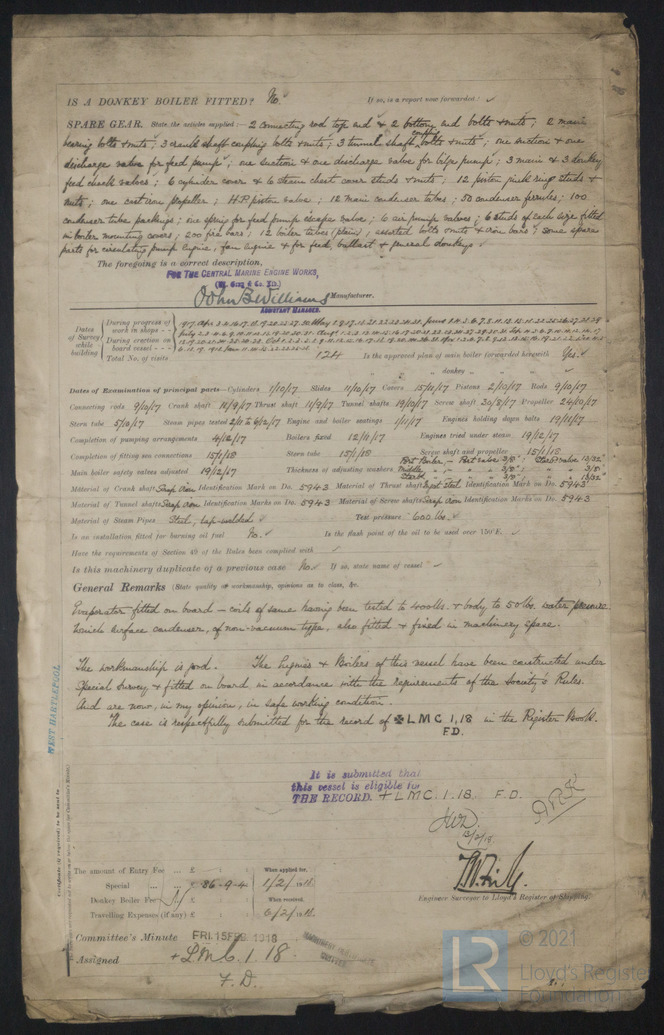 IS A DONKEY BOILER FITTED? No. If so, is a report now forwarded?
SPARE GEAR. State the articles supplied:— 2 connecting rod top end & 2 bottom end bolts & nuts; 2 main
bearing bolts & nuts; 3 crank shaft coupling bolts & nuts; 3 tunnel shaft coupling bolts & nuts; one suction & one
discharge valve for feed pump; one suction & one discharge valve for bilge pump; 3 main & 3 donkey
feed check valves; 6 cylinder cover & 6 steam chest cover studs & nuts; 12 piston junk ring studs &
nuts; one cast iron propeller; H.P. piston valve; 12 main condenser tubes; 50 condenser ferrules; 100
condenser tube packings; one spring for feed pump escape valve; 6 air pump valves; 6 studs of each size fitted
in boiler mounting covers; 200 fire bars; 12 boiler tubes (plain); assorted bolts & nuts & iron bars; some spare
parts for circulating pump engine, fan engine & for feed, ballast & general donkeys
The foregoing is a correct description,
FOR THE CENTRAL MARINE ENGINE WORKS,
(Wm. Gray & Co. Ltd.)
John B Williams Manufacturer.
ASSISTANT MANAGER.
Dates of Survey while building
During progress of work in shops - -
During erection on board vessel - - -
Total No. of visits 124 Is the approved plan of main boiler forwarded herewith Yes.
" " " donkey " " "
Dates of Examination of principal parts—Cylinders 1/10/17 Slides 11/10/17 Covers 15/11/17 Pistons 2/10/17 Rods 9/10/17
Connecting rods 9/10/17 Crank shaft 11/9/17 Thrust shaft 11/9/17 Tunnel shafts 19/10/17 Screw shaft 30/8/17 Propeller 24/10/17
Stern tube 5/10/17 Steam pipes tested 2/11 to 6/12/17 Engine and boiler seatings 1/11/17 Engines holding down bolts 19/11/17
Completion of pumping arrangements 4/12/17 Boilers fixed 12/11/17 Engines tried under steam 19/12/17
Completion of fitting sea connections 15/1/18 Stern tube 15/1/18 Screw shaft and propeller 15/1/18
Main boiler safety valves adjusted 19/12/17 Thickness of adjusting washers Port Boiler — Port valve 3/8"; Starbd valve 13/32
Middle " " " 3/8"; " " 3/8
Starbd " " " 3/8"; " " 13/32
Material of Crank shaft Scrap iron Identification Mark on Do. 5943 Material of Thrust shaft Ingot steel Identification Mark on Do. 5943
Material of Tunnel shafts Scrap iron Identification Marks on Do. 5943 Material of Screw shafts Scrap iron Identification Marks on Do. 5943
Material of Steam Pipes Steel, lap-welded Test pressure 600 lbs.
Is an installation fitted for burning oil fuel No. Is the flash point of the oil to be used over 150°F.
Have the requirements of Section 49 of the Rules been complied with
Is this machinery duplicate of a previous case No. If so, state name of vessel
General Remarks (State quality of workmanship, opinions as to class, &c.
Evaporator fitted on board — coils of same having been tested to 400lbs. & body to 50lbs. water pressure.
Winch surface condenser, of non-vacuum type, also fitted & fixed in machinery space.
The workmanship is good. The Engines & Boilers of this vessel have been constructed under
Special Survey & fitted on board in accordance with the requirements of the Society's Rules.
And are now, in my opinion, in safe working condition.
The case is respectfully submitted for the record of ✠LMC 1,18 in the Register Book.
F.D.
WEST HARTLEPOOL
It is submitted that
this vessel is eligible for
THE RECORD. + LMC. 1.18. F.D.
The amount of Entry Fee ... £ : : When applied for,
Special ... ... £ 86-9-4 1/2/1918.
Donkey Boiler Fee ... £ : : When received,
Travelling Expenses (if any) £ : : 6/2/1918.
Engineer Surveyor to Lloyd's Register of Shipping.
Committee's Minute FRI. 15 FEB. 1918
Assigned + LMC. 1. 18.
F.D.
LR © 2021
Lloyd's Register
Foundation